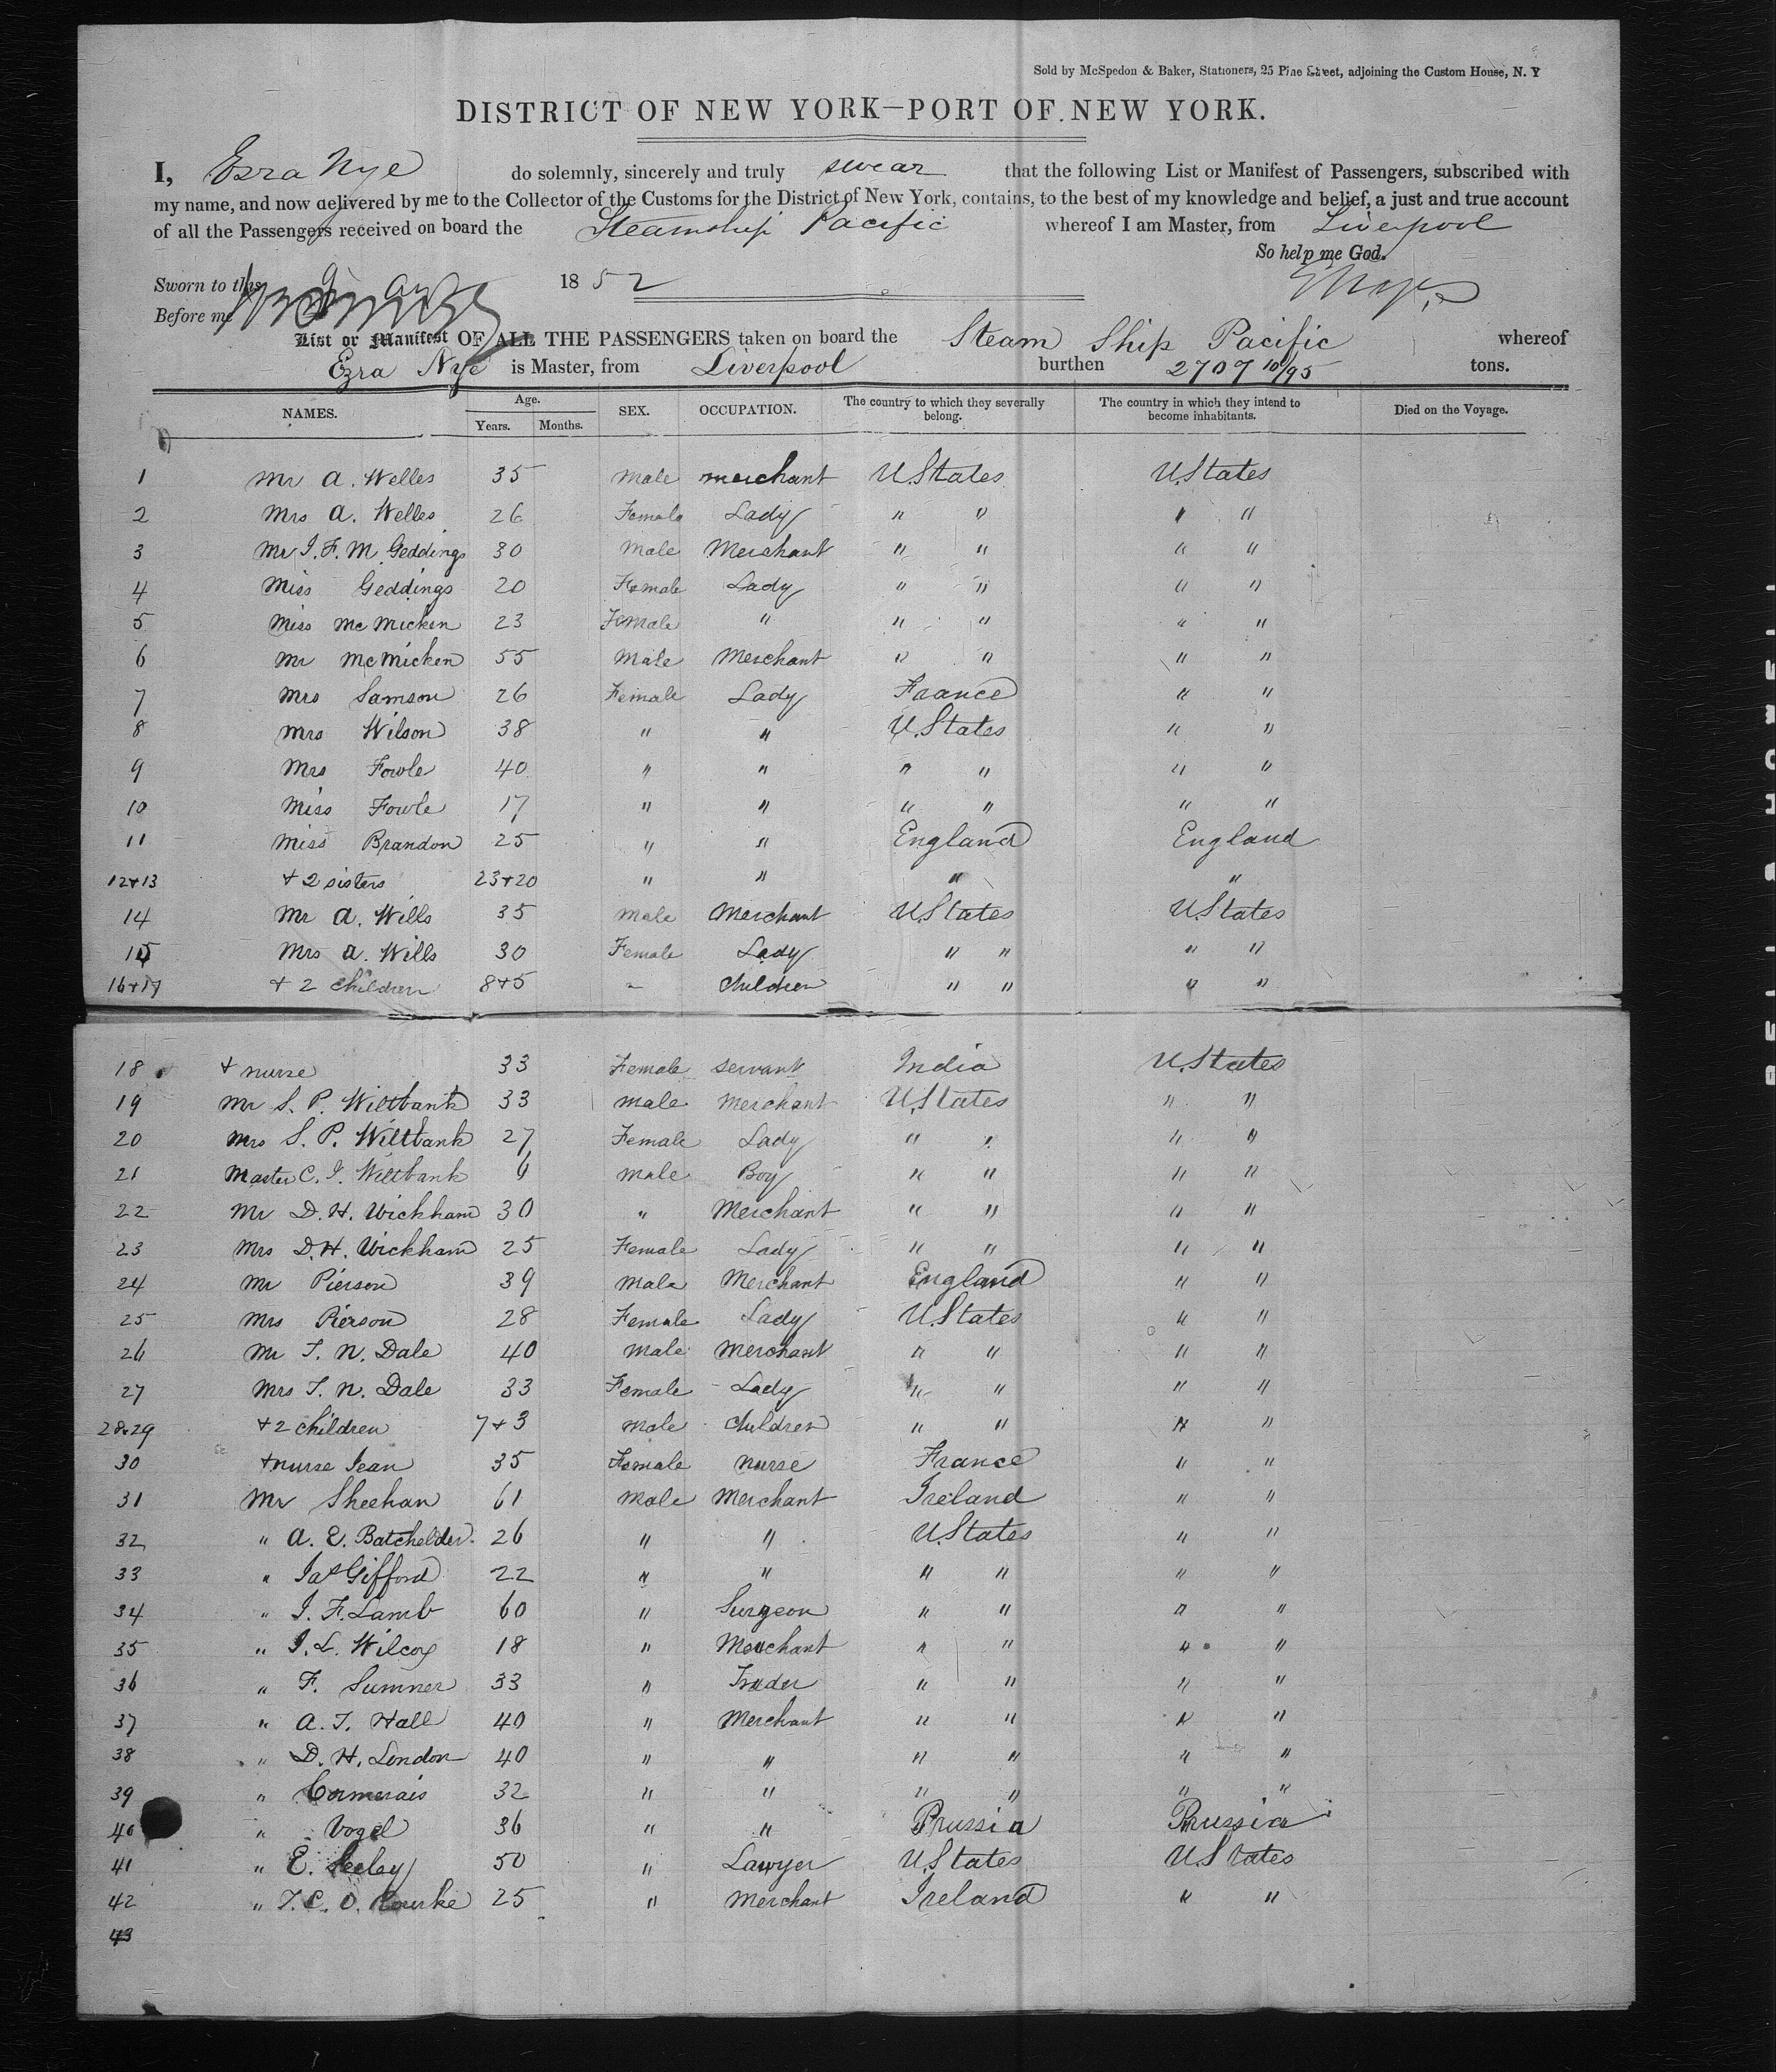 Sold by McSpedon & Baker, Stationers, 25 Pine Street, adjoining the Custom House, N. Y
DISTRICT OF NEW YORK—PORT OF NEW YORK.
I, Ezra Nye do solemnly, sincerely and truly swear that the following List or Manifest of Passengers, subscribed with
my name, and now delivered by me to the Collector of the Customs for the District of New York, contains, to the best of my knowledge and belief, a just and true account
of all the Passengers received on board the Steamship Pacific whereof I am Master, from Liverpool
So help me God.
Sworn to this 1852
Before me
List or Manifest OF ALL THE PASSENGERS taken on board the Steam Ship Pacific whereof
Ezra Nye is Master, from Liverpool burthen 2707 10/95 tons.
NAMES. Age. Years. Months. SEX. OCCUPATION. The country to which they severally belong. The country in which they intend to become inhabitants. Died on the Voyage.
1 Mr A. Welles 35 Male merchant U.States U.States
2 Mrs A. Welles 26 Female Lady " " " "
3 Mr J. F. M. Geddings 30 Male Merchant " " " "
4 Miss Geddings 20 Female Lady " " " "
5 Miss McMicken 23 Female " " " " "
6 Mr McMicken 55 Male Merchant " " " "
7 Mrs Samson 26 Female Lady France " "
8 Mrs Wilson 38 " " U.States " "
9 Mrs Fowle 40 " " " " " "
10 Miss Fowle 17 " " " " " "
11 Miss Brandon 25 " " England England
12+13 + 2 sisters 23+20 " " " "
14 Mr A. Wills 35 Male Merchant U.States U.States
15 Mrs A. Wills 30 Female Lady " " " "
16+17 + 2 children 8+5 - Children " " " "
18 + nurse 33 Female servant India U.States
19 Mr S. P. Wiltbank 33 Male Merchant U.States " "
20 Mrs S. P. Wiltbank 27 Female Lady " " " "
21 Master C. J. Wiltbank 6 Male Boy " " " "
22 Mr D. H. Wickham 30 " Merchant " " " "
23 Mrs D. H. Wickham 25 Female Lady " " " "
24 Mr Pierson 39 Male Merchant England " "
25 Mrs Pierson 28 Female Lady U.States " "
26 Mr T. N. Dale 40 Male Merchant " " " "
27 Mrs T. N. Dale 33 Female Lady " " " "
28+29 + 2 children 7+3 Male Children " " " "
30 + nurse Jean 35 Female nurse France " "
31 Mr Sheehan 61 Male Merchant Ireland " "
32 " A. E. Batchelder 26 " " U.States " "
33 " Jas Gifford 22 " " " " " "
34 " J. F. Lamb 60 " Surgeon " " " "
35 " J. L. Wilcox 18 " Merchant " " " "
36 " F. Sumner 33 " Trader " " " "
37 " A. T. Hall 40 " Merchant " " " "
38 " D. H. London 40 " " " " " "
39 " Cormerais 32 " " " " " "
40 " Vogel 36 " " Prussia Prussia
41 " E. Seeley 50 " Lawyer U.States U.States
42 " T. C. O. Rourke 25 " Merchant Ireland " "
43